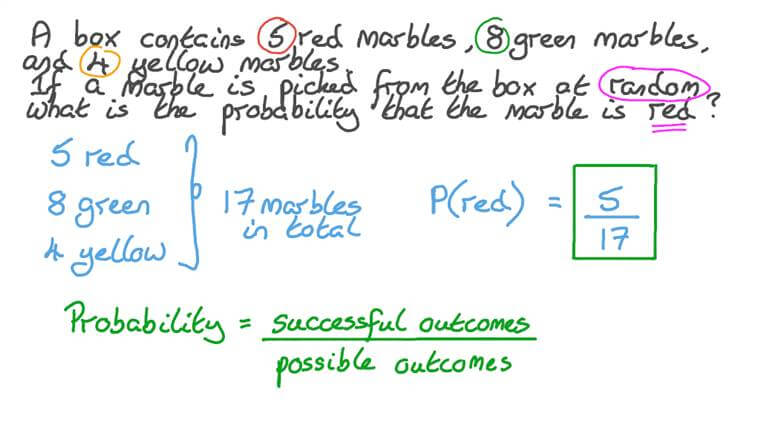 A box contains 5 red marbles, 8 green marbles,
and 4 yellow marbles
If a marble is picked from the box at random
what is the probability that the marble is red?
5 red
8 green
4 yellow
17 marbles
in total
P(red) = 5/17
Probability = successful outcomes
possible outcomes